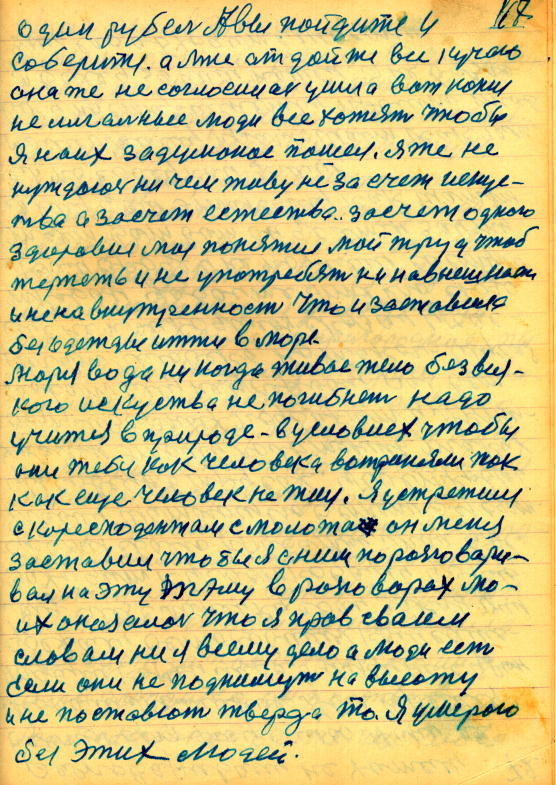 167
один рубел А вы пойдите и
соберите. а мне отдойте все кучою
она же не согласилас ушла вот кокие
не лигалные люди все хотят чтобы
я на их задуманое пошел. Я же не
нуждаюс ни чем живу не за счет искус-
тва а за счет естества. за счет одного
здоровия мое понятие мой труд чтоб
терпеть и не употреблят ни на внешност
и не на внутренност Что и заставила
без одежды итти в море.
Моря вода никогда живое тело без вся-
кого искуства не погибнет надо
учится в природе - в условиех чтобы
они тебя как человека воспиняли так
как еще человек не жил. Я устретился
с коресподентам с молота он меня
заставил что бы я с ним поразговари-
вал на эту тему в разговорах мо-
их оказалос что я прав своем
словам ни я всему дело а люди ест
Если они не поднимут на высоту
и не поставют тверда то. Я умераю
без этих людей.